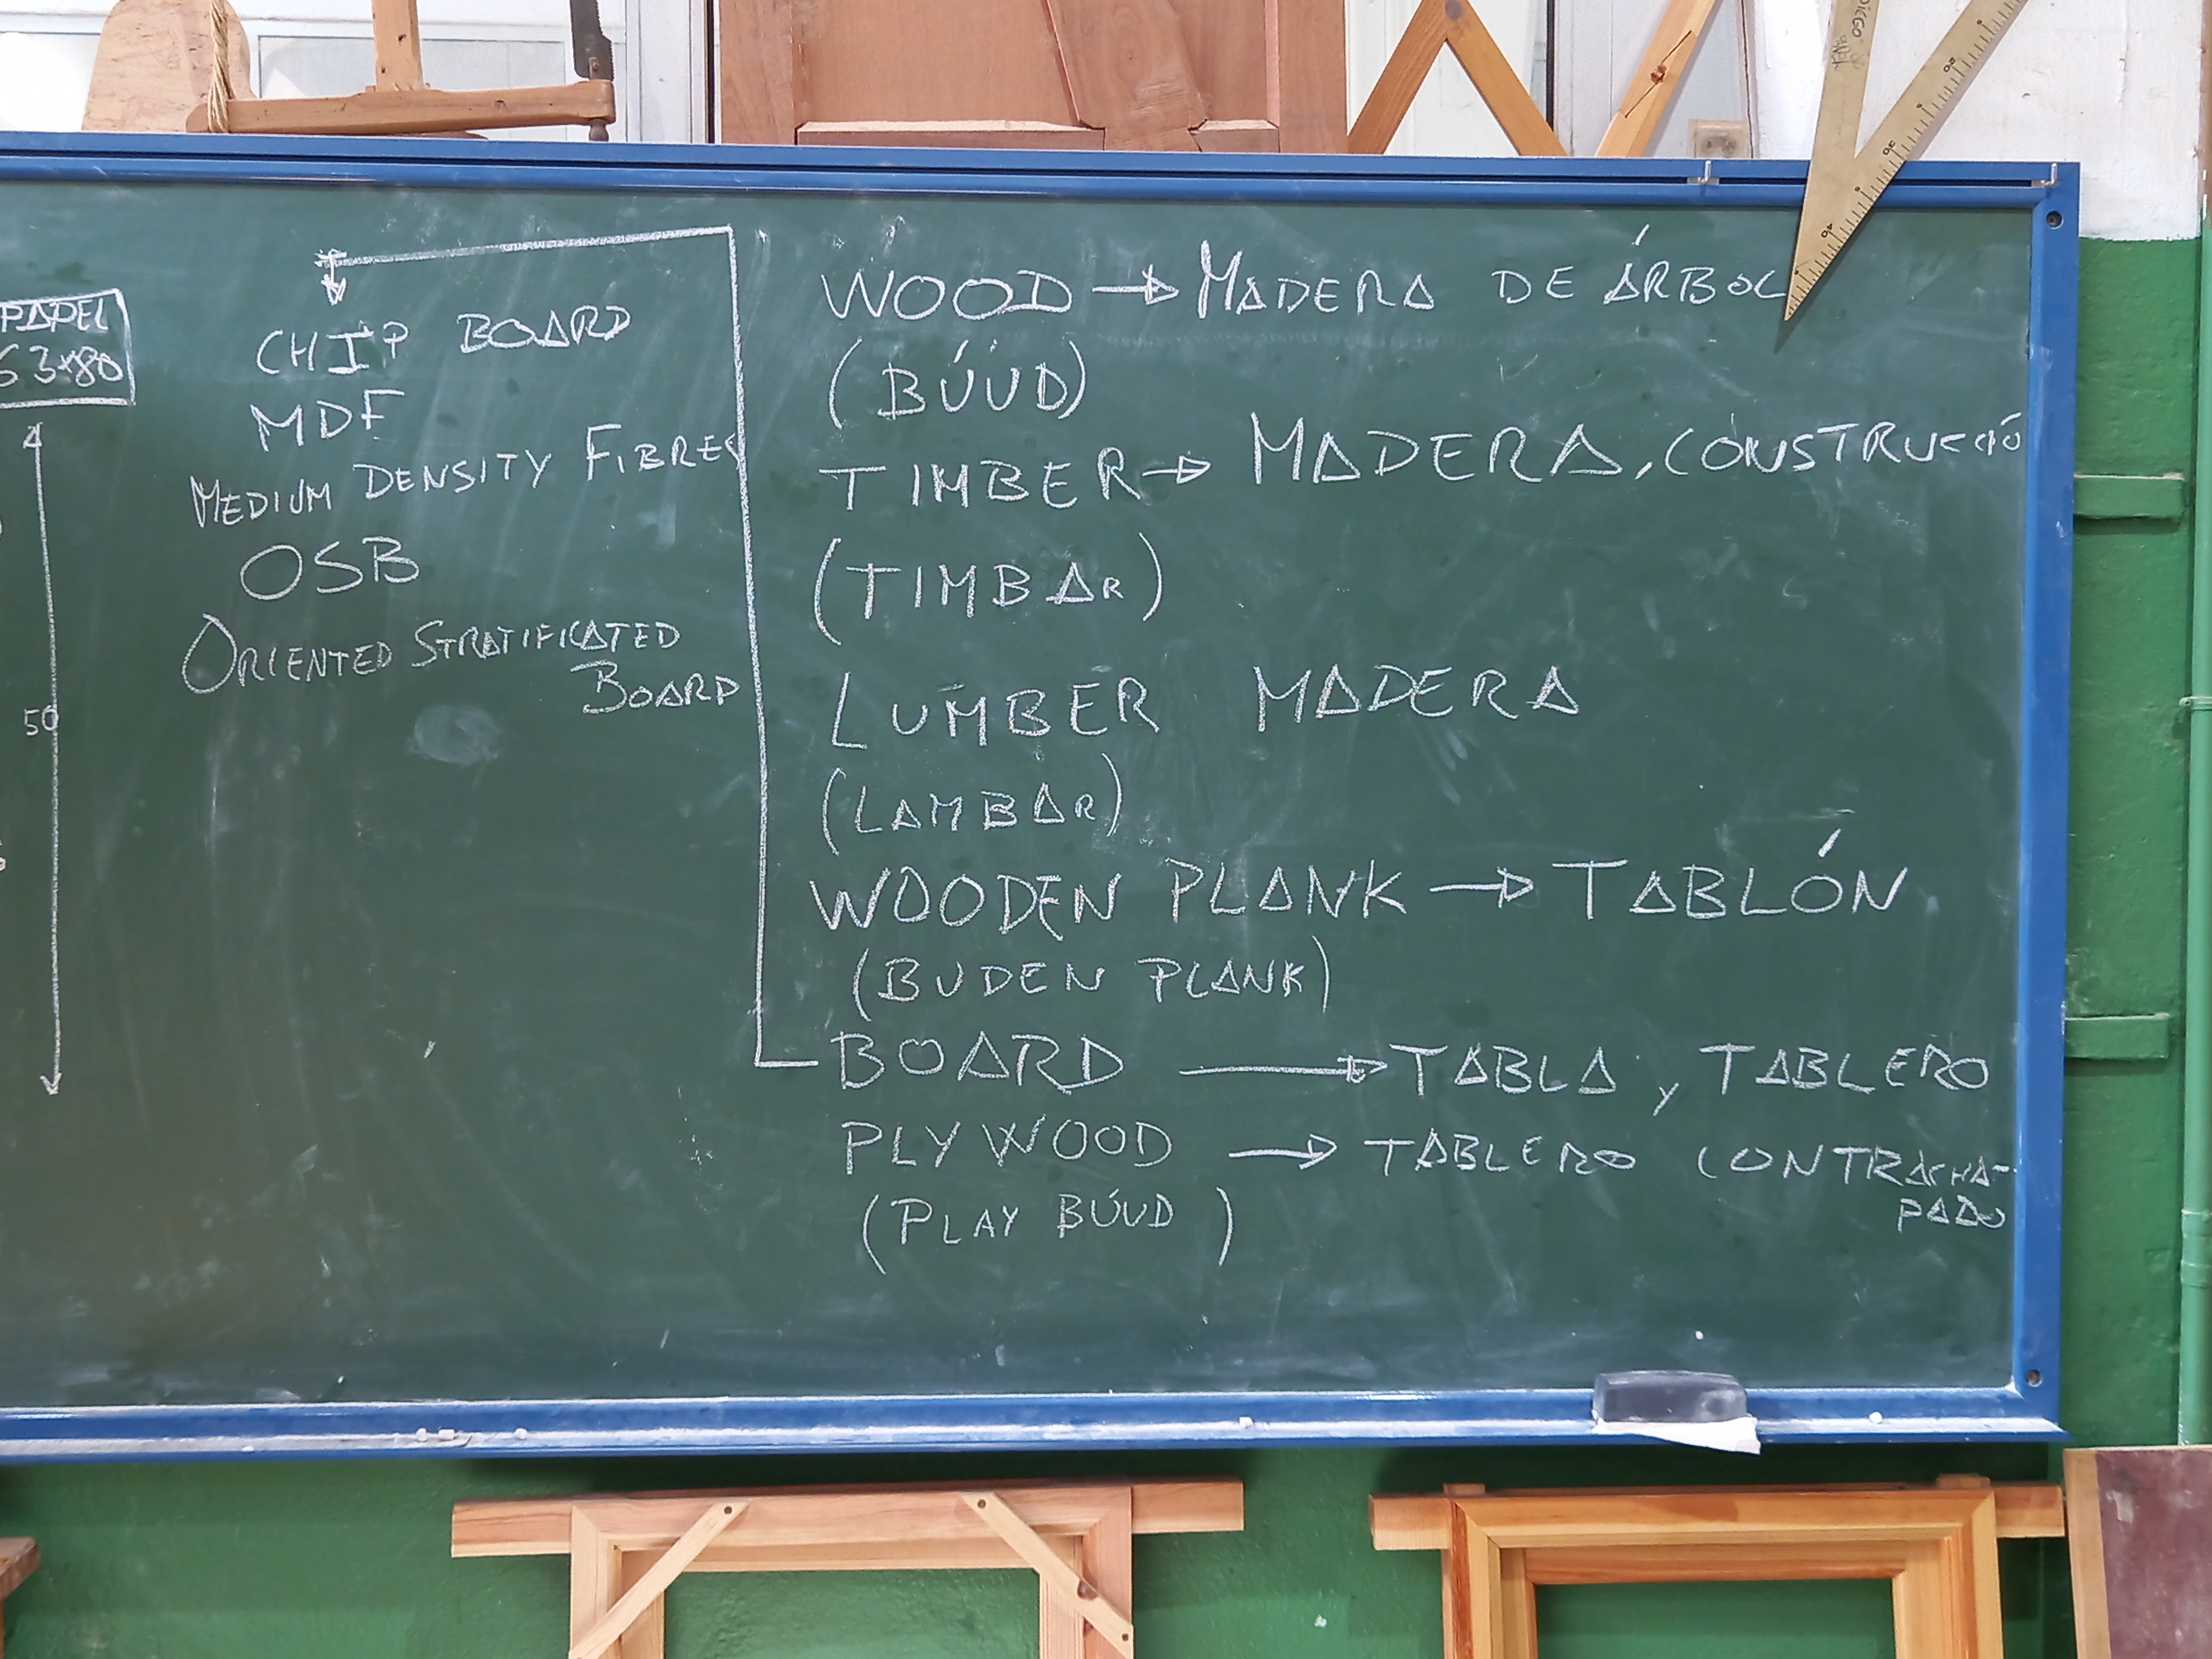 PAPEL
63x80
50
CHIP BOARD
MDF
MEDIUM DENSITY FIBRES
OSB
ORIENTED STRATIFICATED
BOARD
WOOD → MADERA DE ÁRBOL
(BÚUD)
TIMBER → MADERA, CONSTRUCCIÓ
(TIMBAR)
LUMBER MADERA
(LAMBAR)
WOODEN PLANK → TABLÓN
(BUDEN PLANK)
BOARD → TABLA y TABLERO
PLYWOOD → TABLERO CONTRACHA-
PADO
(PLAY BÚUD)
DIEGO
20
30
40